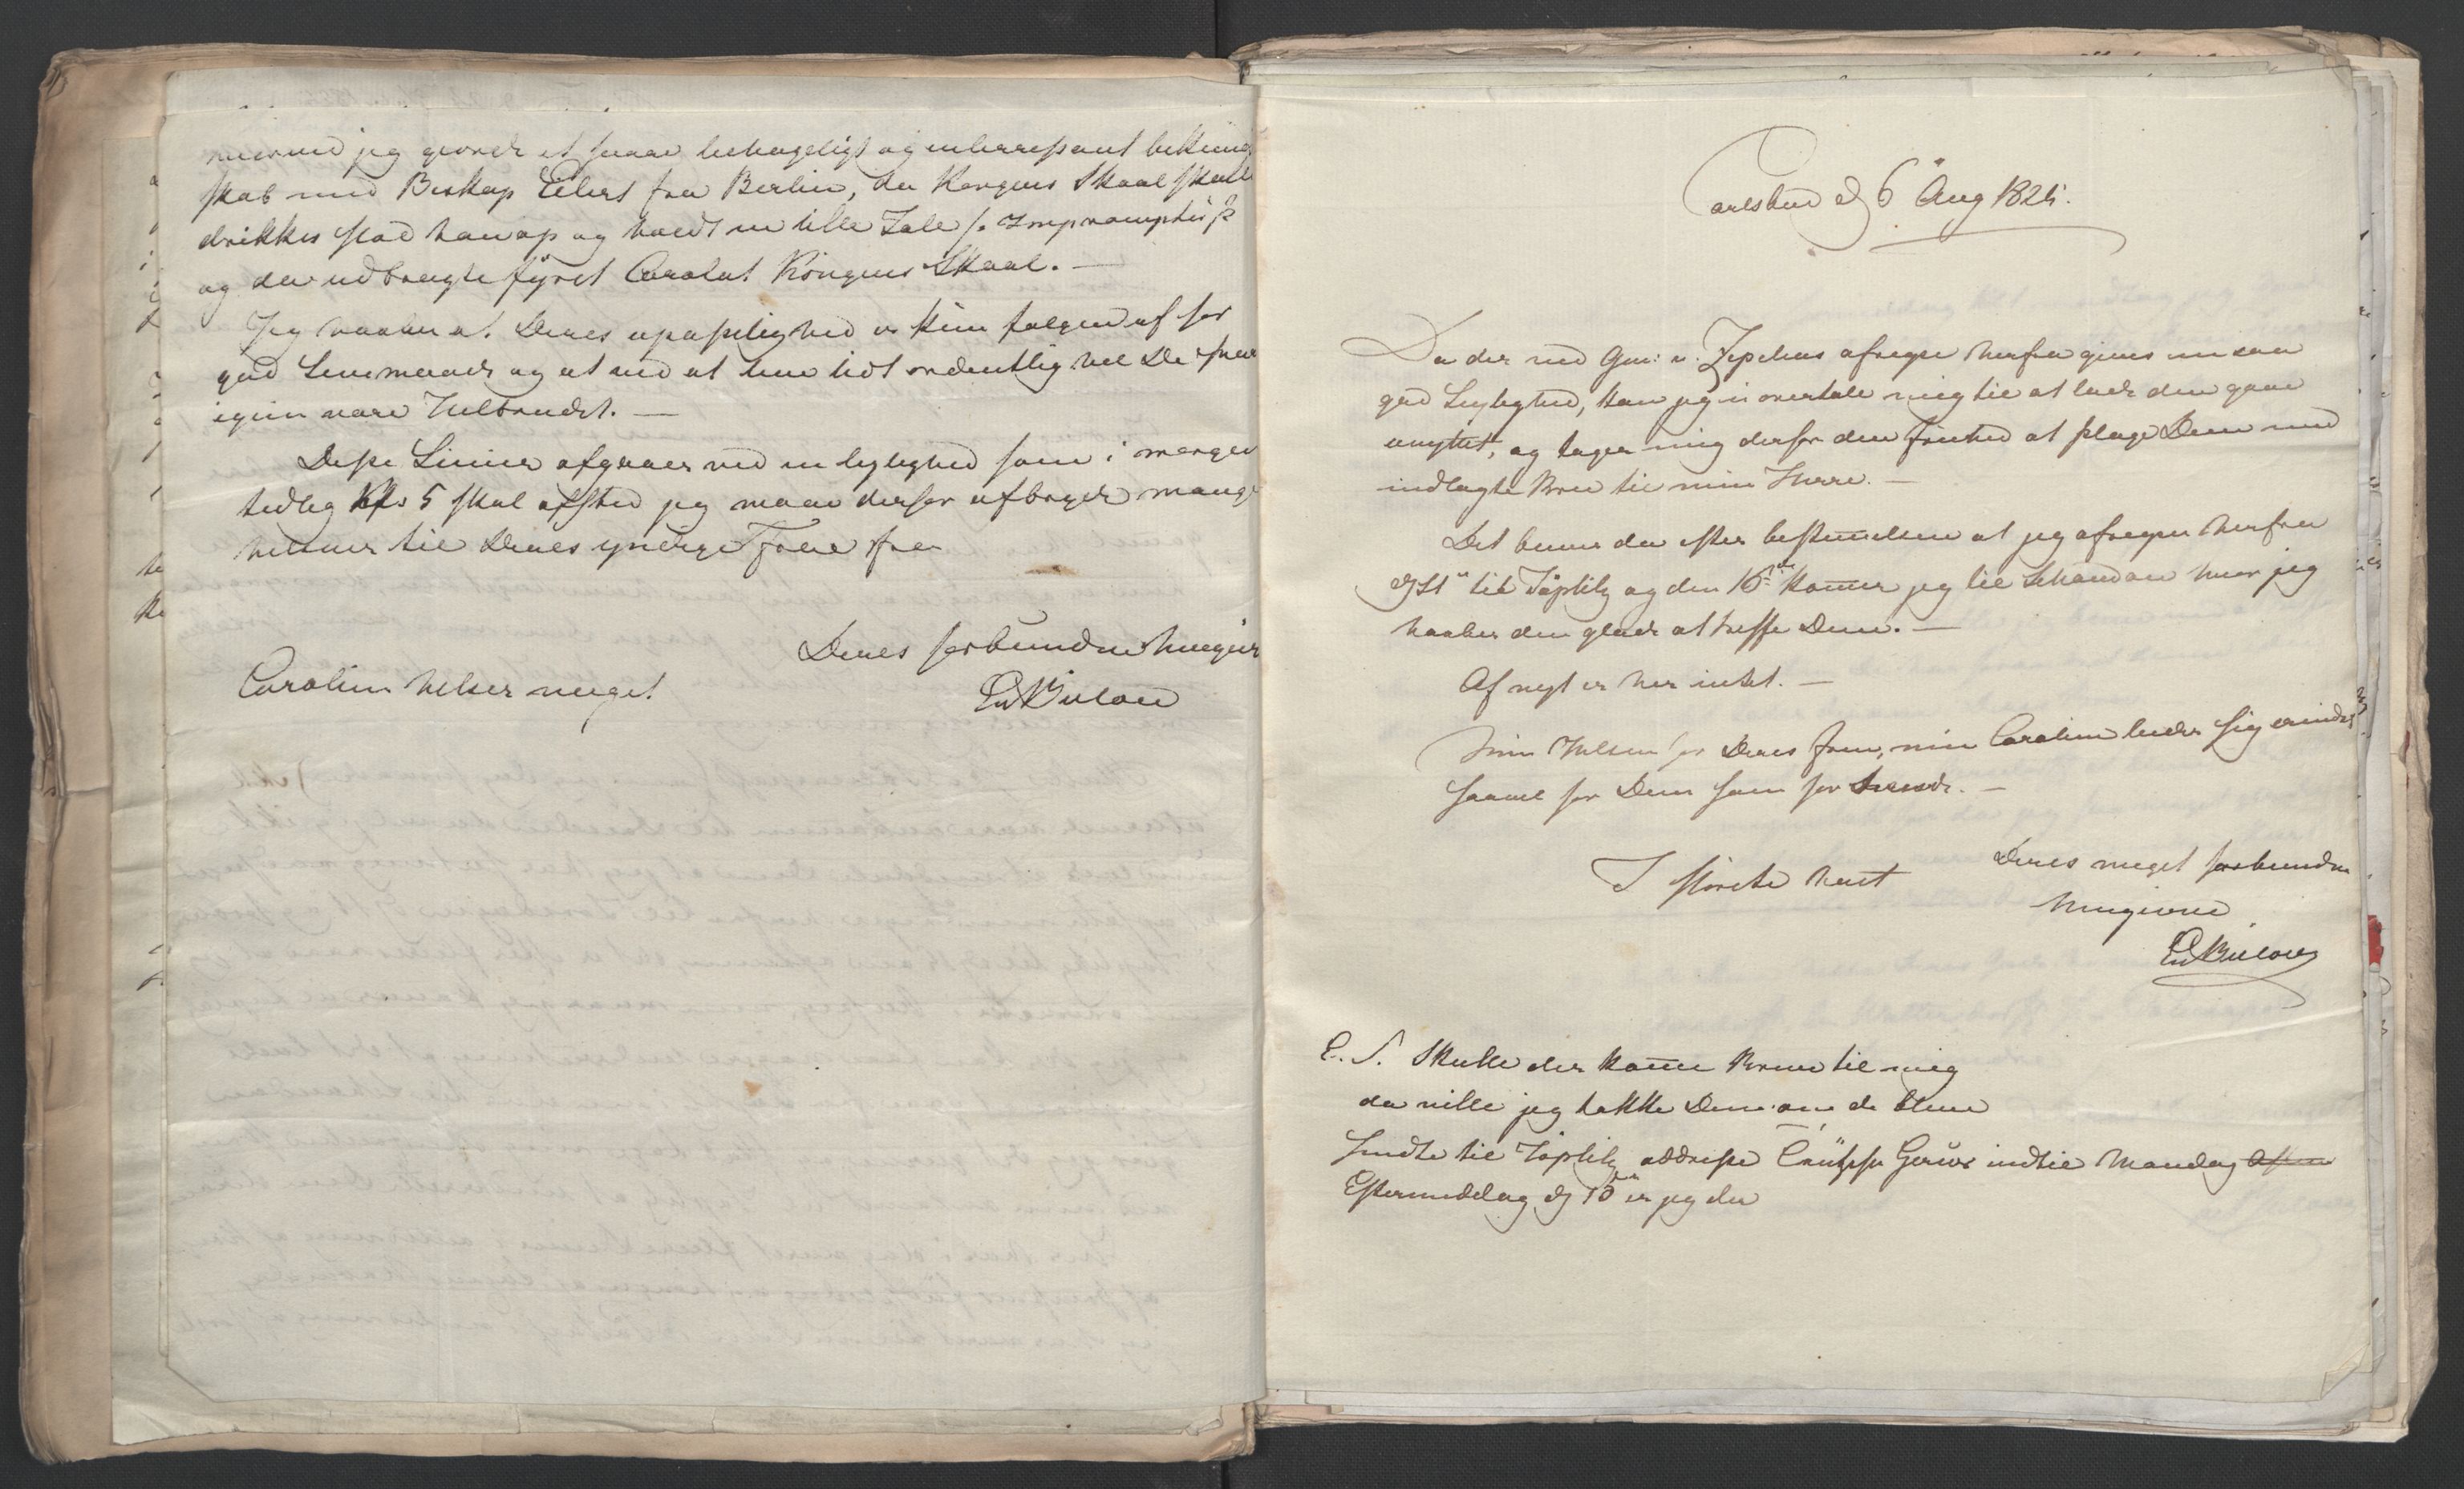 hvorved jeg giorde et saare behageligt og interressant bekiendt
skab med Biskop Eilert fra Berlin, da Kongens Skaal skulle
drikkes stod han op og holdt en lille Tale /: Impromptu :/
og da udbragte fyrst Carolat Kongens Skaal. —
Jeg haaber at Deres upasselighed er kun følgen af for
god Levemaade og at ved at leve lidt ordentlig vil De snar
igien være Helbredet. —
Disse Linier afgaaer ved en leylighed som i morgen
tidlig Kl 5 skal afsted jeg maae derfor afbryde mange
hilsner til Deres yndige Frue fra
Deres forbundne hengivn
EvBulow
Caroline hilser meget
Carlsbad d 6 Aug 1825.
Da der ved Gen: v. Zepelins afreyse herfra gives en saa
god Leylighed, kan jeg ei overtale mig til at lade den gaae
unyttet, og tager mig derfor den frihed at plage Dem med
indlagte Brev til min Herre. —
Det bliver da efter bestemelsen at jeg afreyser herfra
d 11te til Töplitz og den 16de komer jeg til Schandau hvor jeg
haaber den glæde at treffe Dem. —
Af nyt er her intet. —
Min Hilsen for Deres frue, min Caroline lader sig erindre
saavel for Dem som for hende. —
I störste hast
Deres meget forbundne
hengivne
EvBulow
P. S. Skulle der kome Breve til mig
da ville jeg takke Dem om de bleve
sendte til Töplitz addresse Gerüv indtil Mandag Aften
Eftermiddag d 15de er jeg der